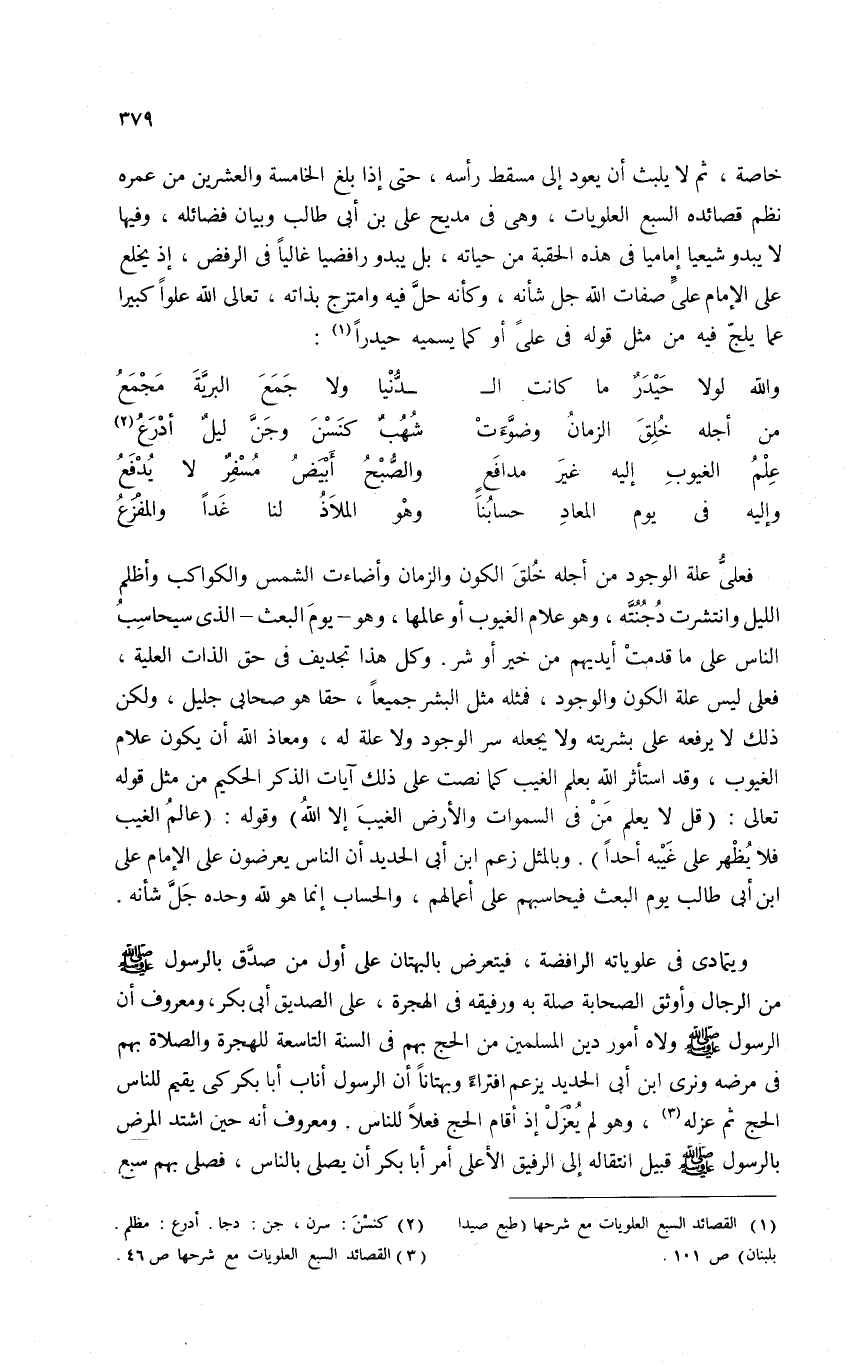 ٣٧٩
خاصة ، ثم لا يلبث أن يعود إلى مسقط رأسه ، حتى إذا بلغ الخامسة والعشرين من عمره
نظم قصائده السبع العلويات ، وهى فى مديح على بن أبى طالب وبيان فضائله ، وفيها
لا يبدو شيعيا إماميا فى هذه الحقبة من حياته ، بل يبدو رافضيا غالياً فى الرفض ، إذ يخلع
على الإمام علىٍّ صفات الله جل شأنه ، وكأنه حلَّ فيه وامتزج بذاته ، تعالى الله علواً كبيرا
عما يلجّ فيه من مثل قوله فى علىّ أو كما يسميه حيدراً(١) :
والله لولا حَيْدَرٌ ما كانت الـ ـدُّنْيا ولا جَمَعَ البريَّةَ مَجْمَعُ
من أجله خُلِقَ الزمانُ وضوَّءَتْ شُهُبٌ كنَسْنَ وجَنَّ ليلٌ أدْرَعُ(٢)
عِلْمُ الغيوبِ إليه غيرَ مدافَعٍ والصُّبْحُ أَبْيَضُ مُسْفِرٌ لا يُدْفَعُ
وإليه فى يوم المعادِ حسابُنا وهْو الملاَذُ لنا غَداً والمفْزَعُ
فعلىٌّ علة الوجود من أجله خُلقَ الكون والزمان وأضاءت الشمس والكواكب وأظلم
الليل وانتشرت دُجُنَّته ، وهو علام الغيوب أو عالمها ، وهو – يومَ البعث – الذى سيحاسِبُ
الناس على ما قدمتْ أيديهم من خير أو شر . وكل هذا تجديف فى حق الذات العلية ،
فعلى ليس علة الكون والوجود ، فمثله مثل البشر جميعاً ، حقا هو صحابى جليل ، ولكن
ذلك لا يرفعه على بشريته ولا يجعله سر الوجود ولا علة له ، ومعاذ الله أن يكون علام
الغيوب ، وقد استأثر الله بعلم الغيب كما نصت على ذلك آيات الذكر الحكيم من مثل قوله
تعالى : (قل لا يعلم مَنْ فى السموات والأرض الغيبَ إلا اللهُ) وقوله : (عالمُ الغيب
فلا يُظْهر على غَيْبه أحداً) . وبالمثل زعم ابن أبى الحديد أن الناس يعرضون على الإمام على
ابن أبى طالب يوم البعث فيحاسبهم على أعمالهم ، والحساب إنما هو لله وحده جَلَّ شأنه .
ويتمادى فى علوياته الرافضة ، فيتعرض بالبهتان على أول من صدَّق بالرسول ﷺ
من الرجال وأوثق الصحابة صلة به ورفيقه فى الهجرة ، على الصديق أبى بكر، ومعروف أن
الرسول ﷺ ولاه أمور دين المسلمين من الحج بهم فى السنة التاسعة للهجرة والصلاة بهم
فى مرضه ونرى ابن أبى الحديد يزعم افتراءً وبهتاناً أن الرسول أناب أبا بكر كى يقيم للناس
الحج ثم عزله(٣) ، وهو لم يُعْزَلْ إذ أقام الحج فعلاً للناس . ومعروف أنه حين اشتد المرض
بالرسول ﷺ قبيل انتقاله إلى الرفيق الأعلى أمر أبا بكر أن يصلى بالناس ، فصلى بهم سبع
(١) القصائد السبع العلويات مع شرحها (طبع صيدا
بلبنان) ص ١٠١ .
(٢) كنسْنَ : سرن ، جن : دجا . أدرع : مظلم .
(٣) القصائد السبع العلويات مع شرحها ص ٤٦ .